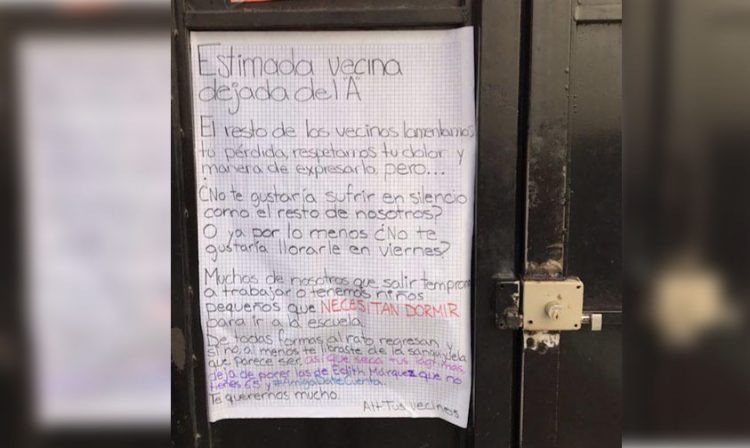 Estimada vecina
dejada del "A"
El resto de los vecinos lamentamos
tu pérdida, respetamos tu dolor y
manera de expresarlo, pero...
¿No te gustaría sufrir en silencio
como el resto de nosotros?
O ya por lo menos ¿No te
gustaría llorarle en viernes?
Muchos de nosotros que salir temprano
a trabajar o tenemos niños
pequeños que NECESITAN DORMIR
para ir a la escuela.
De todas formas al rato regresan y
si no, al menos te libraste de la sanguijuela
que parece ser, así que seca tus lágrimas,
deja de poner las de Edith Márquez que no
tienes 65 y #AmigaDateCuenta.
Te queremos mucho.
Att Tus vecinos